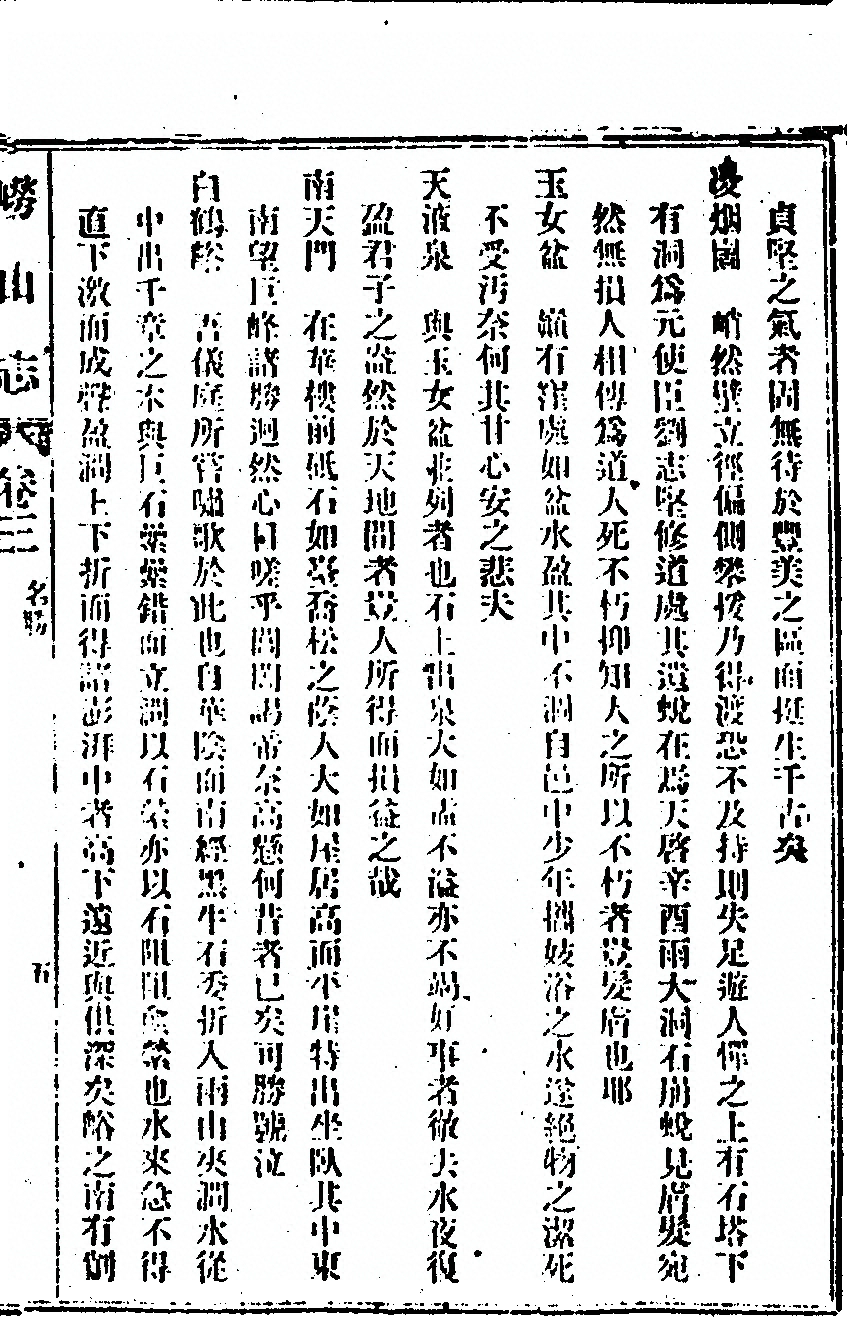 貞堅之氣者固無待於豐美之區而挺生千古矣
凌烟崮　峭然壁立徑偏側攀援乃得渡恐不及持則失足遊人憚之上有石塔下
有洞爲元使臣劉志堅修道處其遺蛻在焉天啓辛酉雨大洞石崩蛻見膚髮宛
然無損人相傳爲道人死不朽抑知人之所以不朽者豈髮膚也耶
玉女盆　巓有窪處如盆水盈其中不涸自邑中少年攜妓浴之水遂絕物之潔死
不受汚奈何其甘心安之悲夫
天液泉　與玉女盆並列者也石上出泉大如盂不溢亦不竭好事者徹去水夜復
盈君子之盗然於天地間者豈人所得而損益之哉
南天門　在華樓前砥石如臺喬松之蔭人大如屋居高而平崖特出坐臥其中東
南望巨峰諸勝迴然心目嗟乎閶闔謁帝奈高懸何昔者已矣可勝號泣
白鶴峪　吾儀庭所嘗嘯歌於此也自華陰而南經黑牛石委折入兩山夾澗水從
中出千章之木與巨石纍纍錯而立澗以石縈亦以石阻阻愈縈也水來急不得
直下激而成聲盈澗上下折而得諸澎湃中者高下遠近與俱深矣峪之南有
嶗山志　卷三　名勝　五